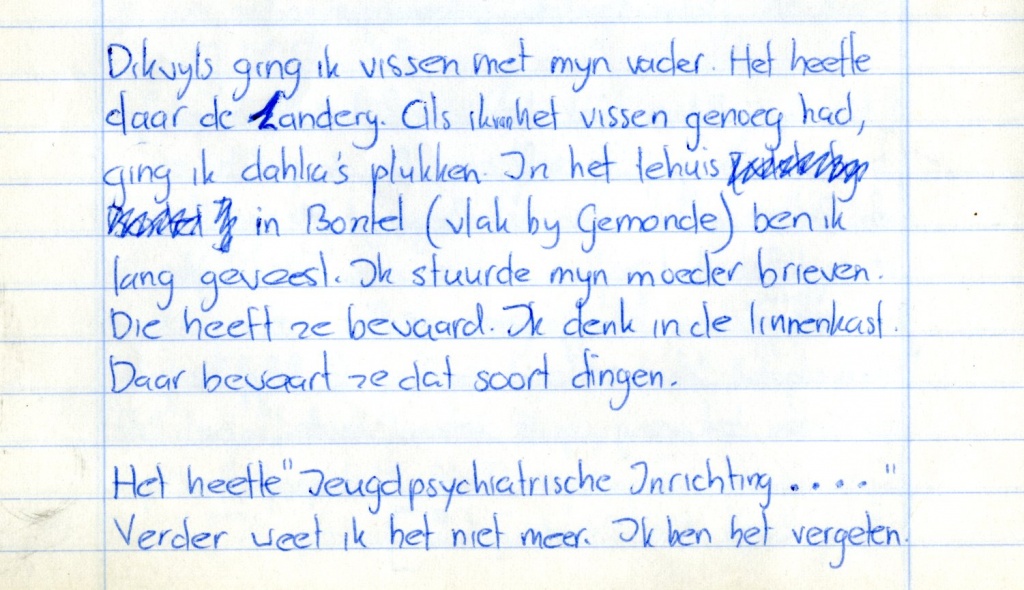 Dikwyls ging ik vissen met myn vader. Het heette
daar de Landery. Als ik van het vissen genoeg had,
ging ik dahlia's plukken. In het tehuis
in Boxtel (vlak by Gemonde) ben ik
lang geweest. Ik stuurde myn moeder brieven.
Die heeft ze bewaard. Ik denk in de linnenkast.
Daar bewaart ze dat soort dingen.
Het heette "Jeugdpsychiatrische Inrichting ...."
Verder weet ik het niet meer. Ik ben het vergeten.